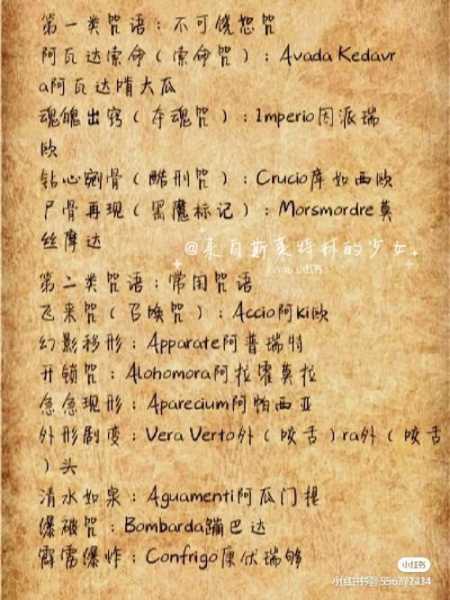 第一类咒语：不可饶恕咒
阿瓦达索命（索命咒）：Avada Kedavr
a阿瓦达啃大瓜
魂魄出窍（夺魂咒）：Imperio因派瑞
欧
钻心剜骨（酷刑咒）：Crucio库如西欧
尸骨再现（黑魔标记）：Morsmordre莫
丝摩达
@来自斯莱特林的少女
小红书
第二类咒语：常用咒语
飞来咒（召唤咒）：Accio阿Ki欧
幻影移形：Apparate阿普瑞特
开锁咒：Alohomora阿拉霍莫拉
急急现形：Aparecium阿帕西亚
外形剧变：Vera Verto外（咬舌）ra外（咬舌
）头
清水如泉：Aguamenti阿瓜门提
爆破咒：Bombarda蹦巴达
霹雳爆炸：Confrigo厍伏瑞够
小红书
小红书号